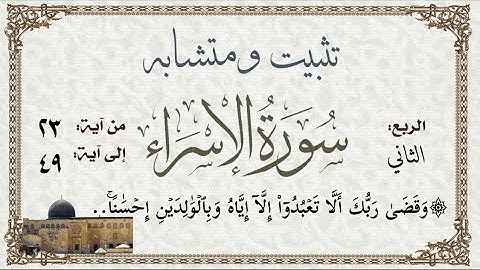 تثبيت ومتشابه
سُورَةُ الإِسْرَاء
الربع:
الثاني
من آية: ٢٣
إلى آية: ٤٩
۞وَقَضَىٰ رَبُّكَ أَلَّا تَعۡبُدُوٓاْ إِلَّآ إِيَّاهُ وَبِٱلۡوَٰلِدَيۡنِ إِحۡسَٰنًاۚ..